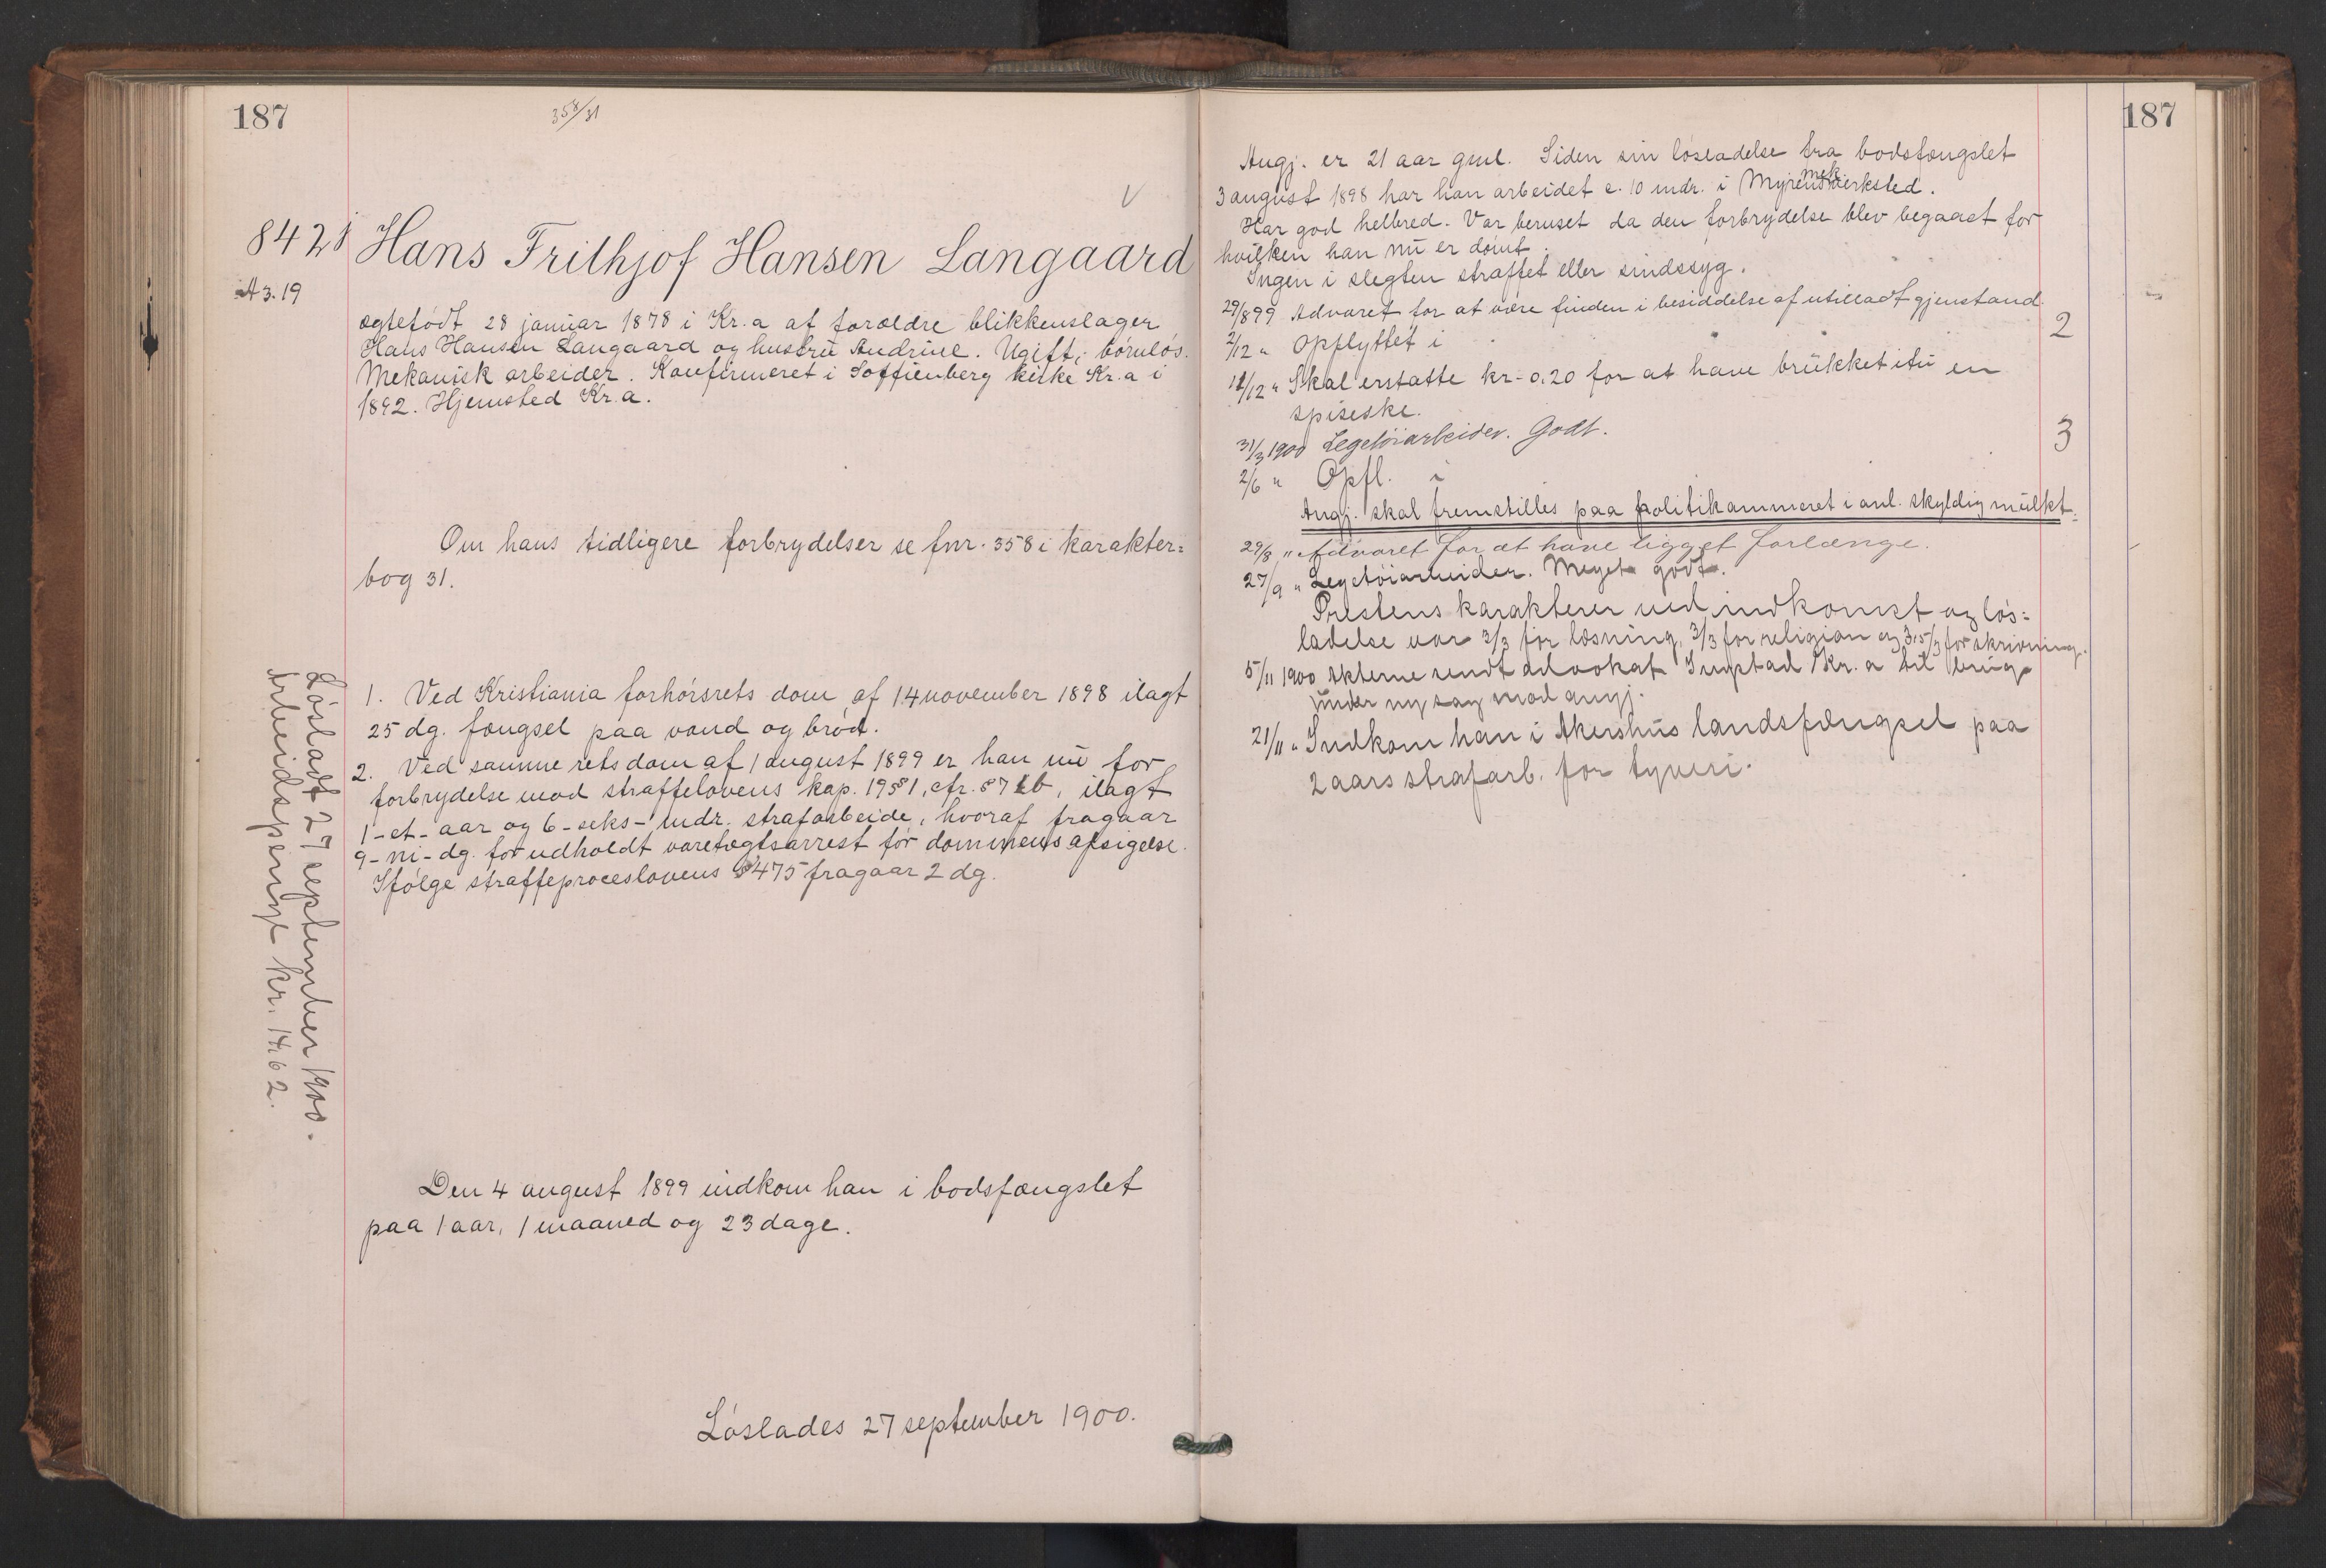 187
358/31
8421
A 3.19
Hans Frithjof Hansen Langaard
ægtefødt 28 januar 1878 i Kr.a af forældre blikkenslager
Hans Hansen Langaard og hustru Andrine. Ugift, børnløs.
Mekanisk arbeider. Konfirmeret i Soffienberg kirke Kr.a i
1892. Hjemsted Kr.a.
Om hans tidligere forbrydelser se fnr. 358 i karakter=
bog 31.
1. Ved Kristiania forhørsrets dom af 14 november 1898 ilagt
25 dg. fængsel paa vand og brød.
2. Ved samme rets dom af 1 august 1899 er han nu for
forbrydelse mod straffelovens kap. 19 § 1, cfr. § 7 b, ilagt
1-et-aar og 6-seks-mdr. strafarbeide, hvoraf fragaar
9-ni-dg. for udholdt varetægtsarrest før dommens afsigelse.
Ifølge straffeproceslovens § 475 fragaar 2 dg.
Løsladt 27 september 1900.
Arbeidspenge kr. 14.62.
Den 4 august 1899 indkom han i bodsfængslet
paa 1 aar, 1 maaned og 23 dage.
Løslades 27 september 1900.
187
Angj. er 21 aar gml. Siden sin løsladelse fra bodsfængslet
3 august 1898 har han arbeidet c. 10 mdr. i Myrens mek. værksted.
Har god helbred. Var beruset da den forbrydelse blev begaaet for
hvilken han nu er dømt.
Ingen i slegten straffet eller sindssyg.
29/8 99 Advaret for at være funden i besiddelse af utilladt gjenstand
2/12 " Opflyttet i 2
11/12 " Skal erstatte kr. 0.20 for at have brukket itu en
spiseske.
31/3 1900 Legetøiarbeider. Godt.
2/6 " Opfl. i 3
Angj. skal fremstilles paa politikammeret i anl. skyldig mulkt.
29/8 " Advaret for at have ligget forlænge.
27/9 " Legetøiarbeider. Meget godt.
Prestens karakterer ved indkomst og løs=
ladelse var 3/3 for læsning, 3/3 for religion og 3,5/3 for skrivning.
5/11 1900 Akterne sendt advokat Kr. a til brug
under ny sag mod angj.
21/11 " Indkom han i Akershus landsfængsel paa
2 aars strafarb. for tyveri.